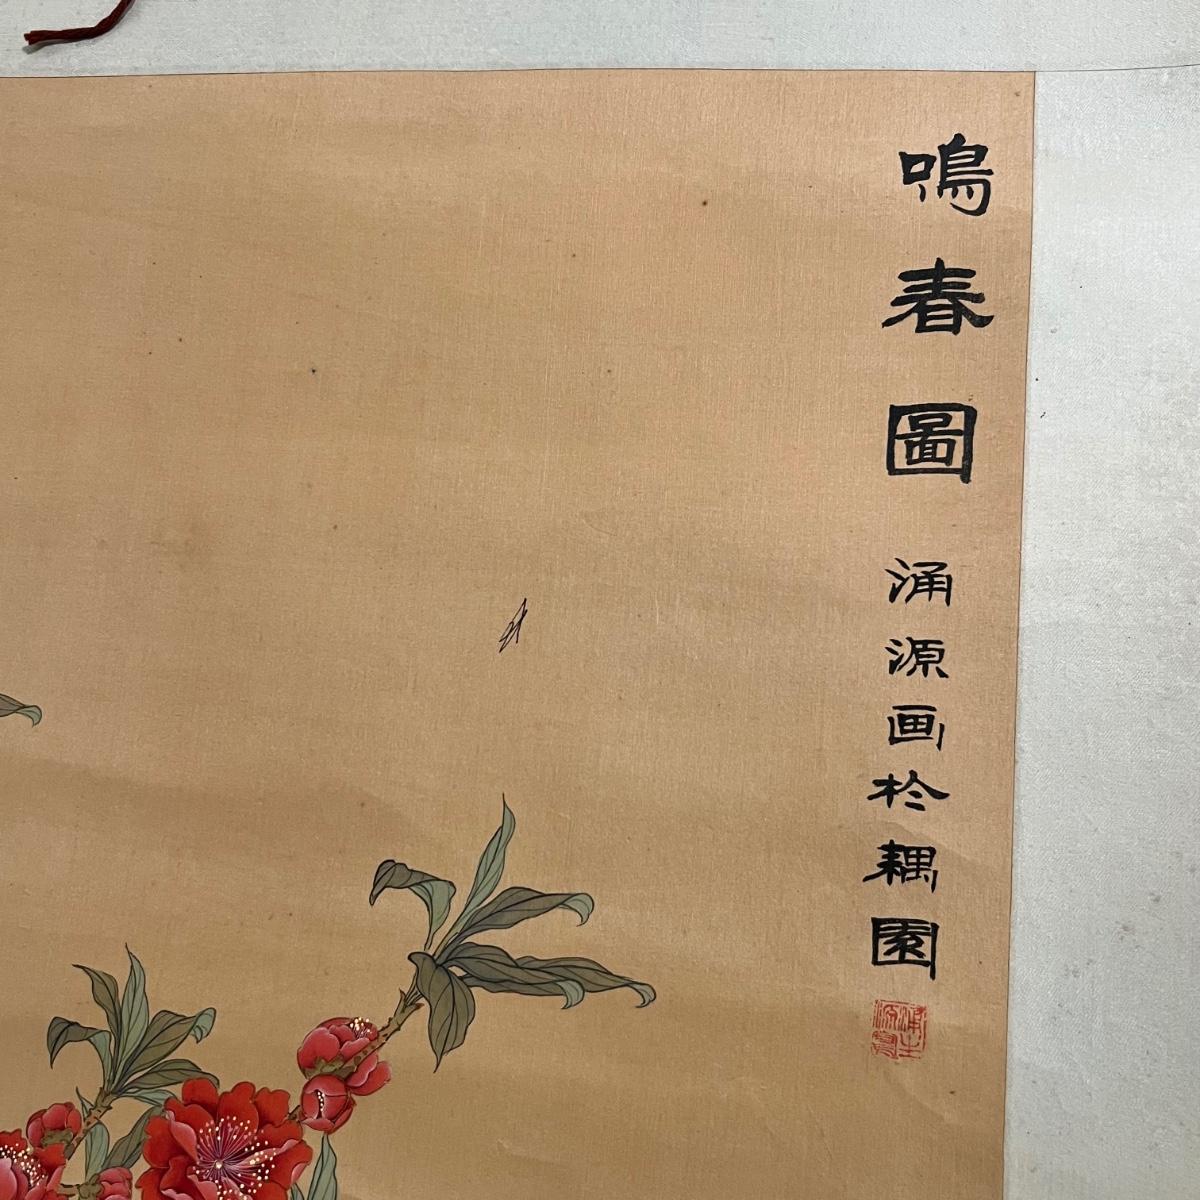 鳴春圖 涌源画於耦園